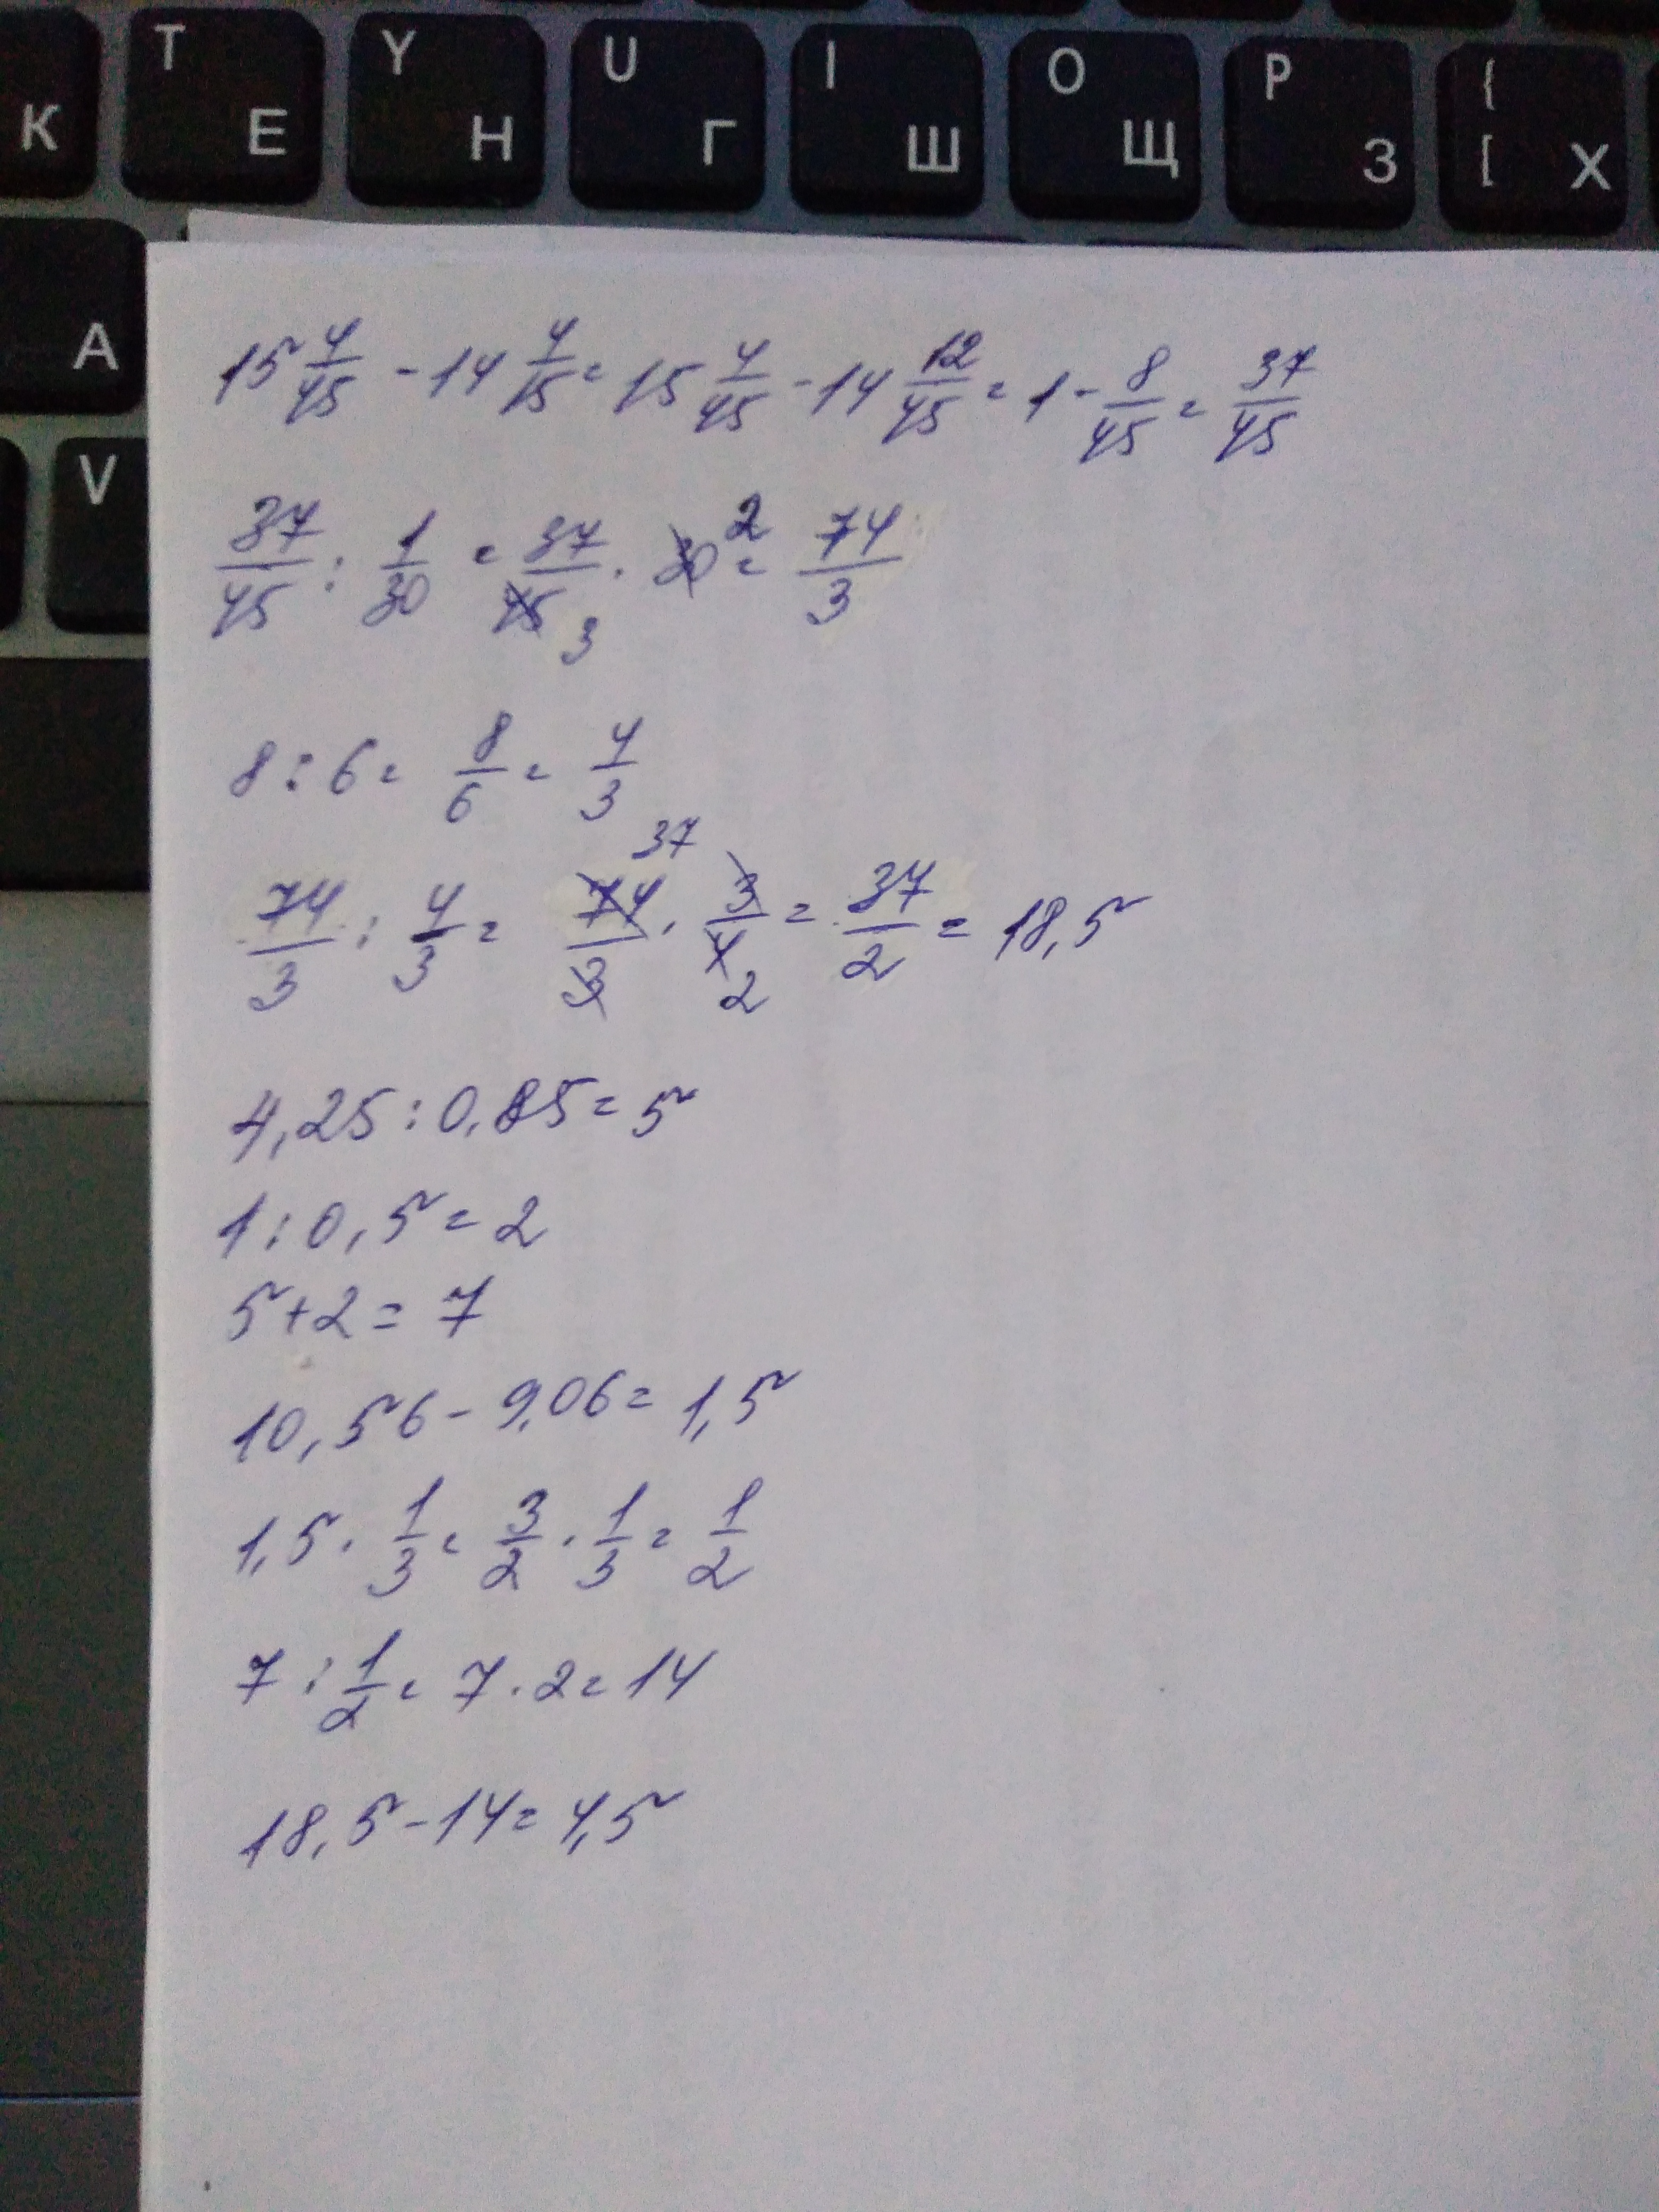 T Y U I O P {
К Е Н Г Ш Щ З [ Х
А
V
15 4/45 - 14 4/15 = 15 4/45 - 14 12/45 = 1 - 8/45 = 37/45
37/45 : 1/30 = 37/45 3 · 30 2 = 74/3
8 : 6 = 8/6 = 4/3
74/3 : 4/3 = 74/3 37 · 3/4 2 = 37/2 = 18,5
4,25 : 0,85 = 5
1 : 0,5 = 2
5 + 2 = 7
10,56 - 9,06 = 1,5
1,5 · 1/3 = 3/2 · 1/3 = 1/2
7 : 1/2 = 7 · 2 = 14
18,5 - 14 = 4,5